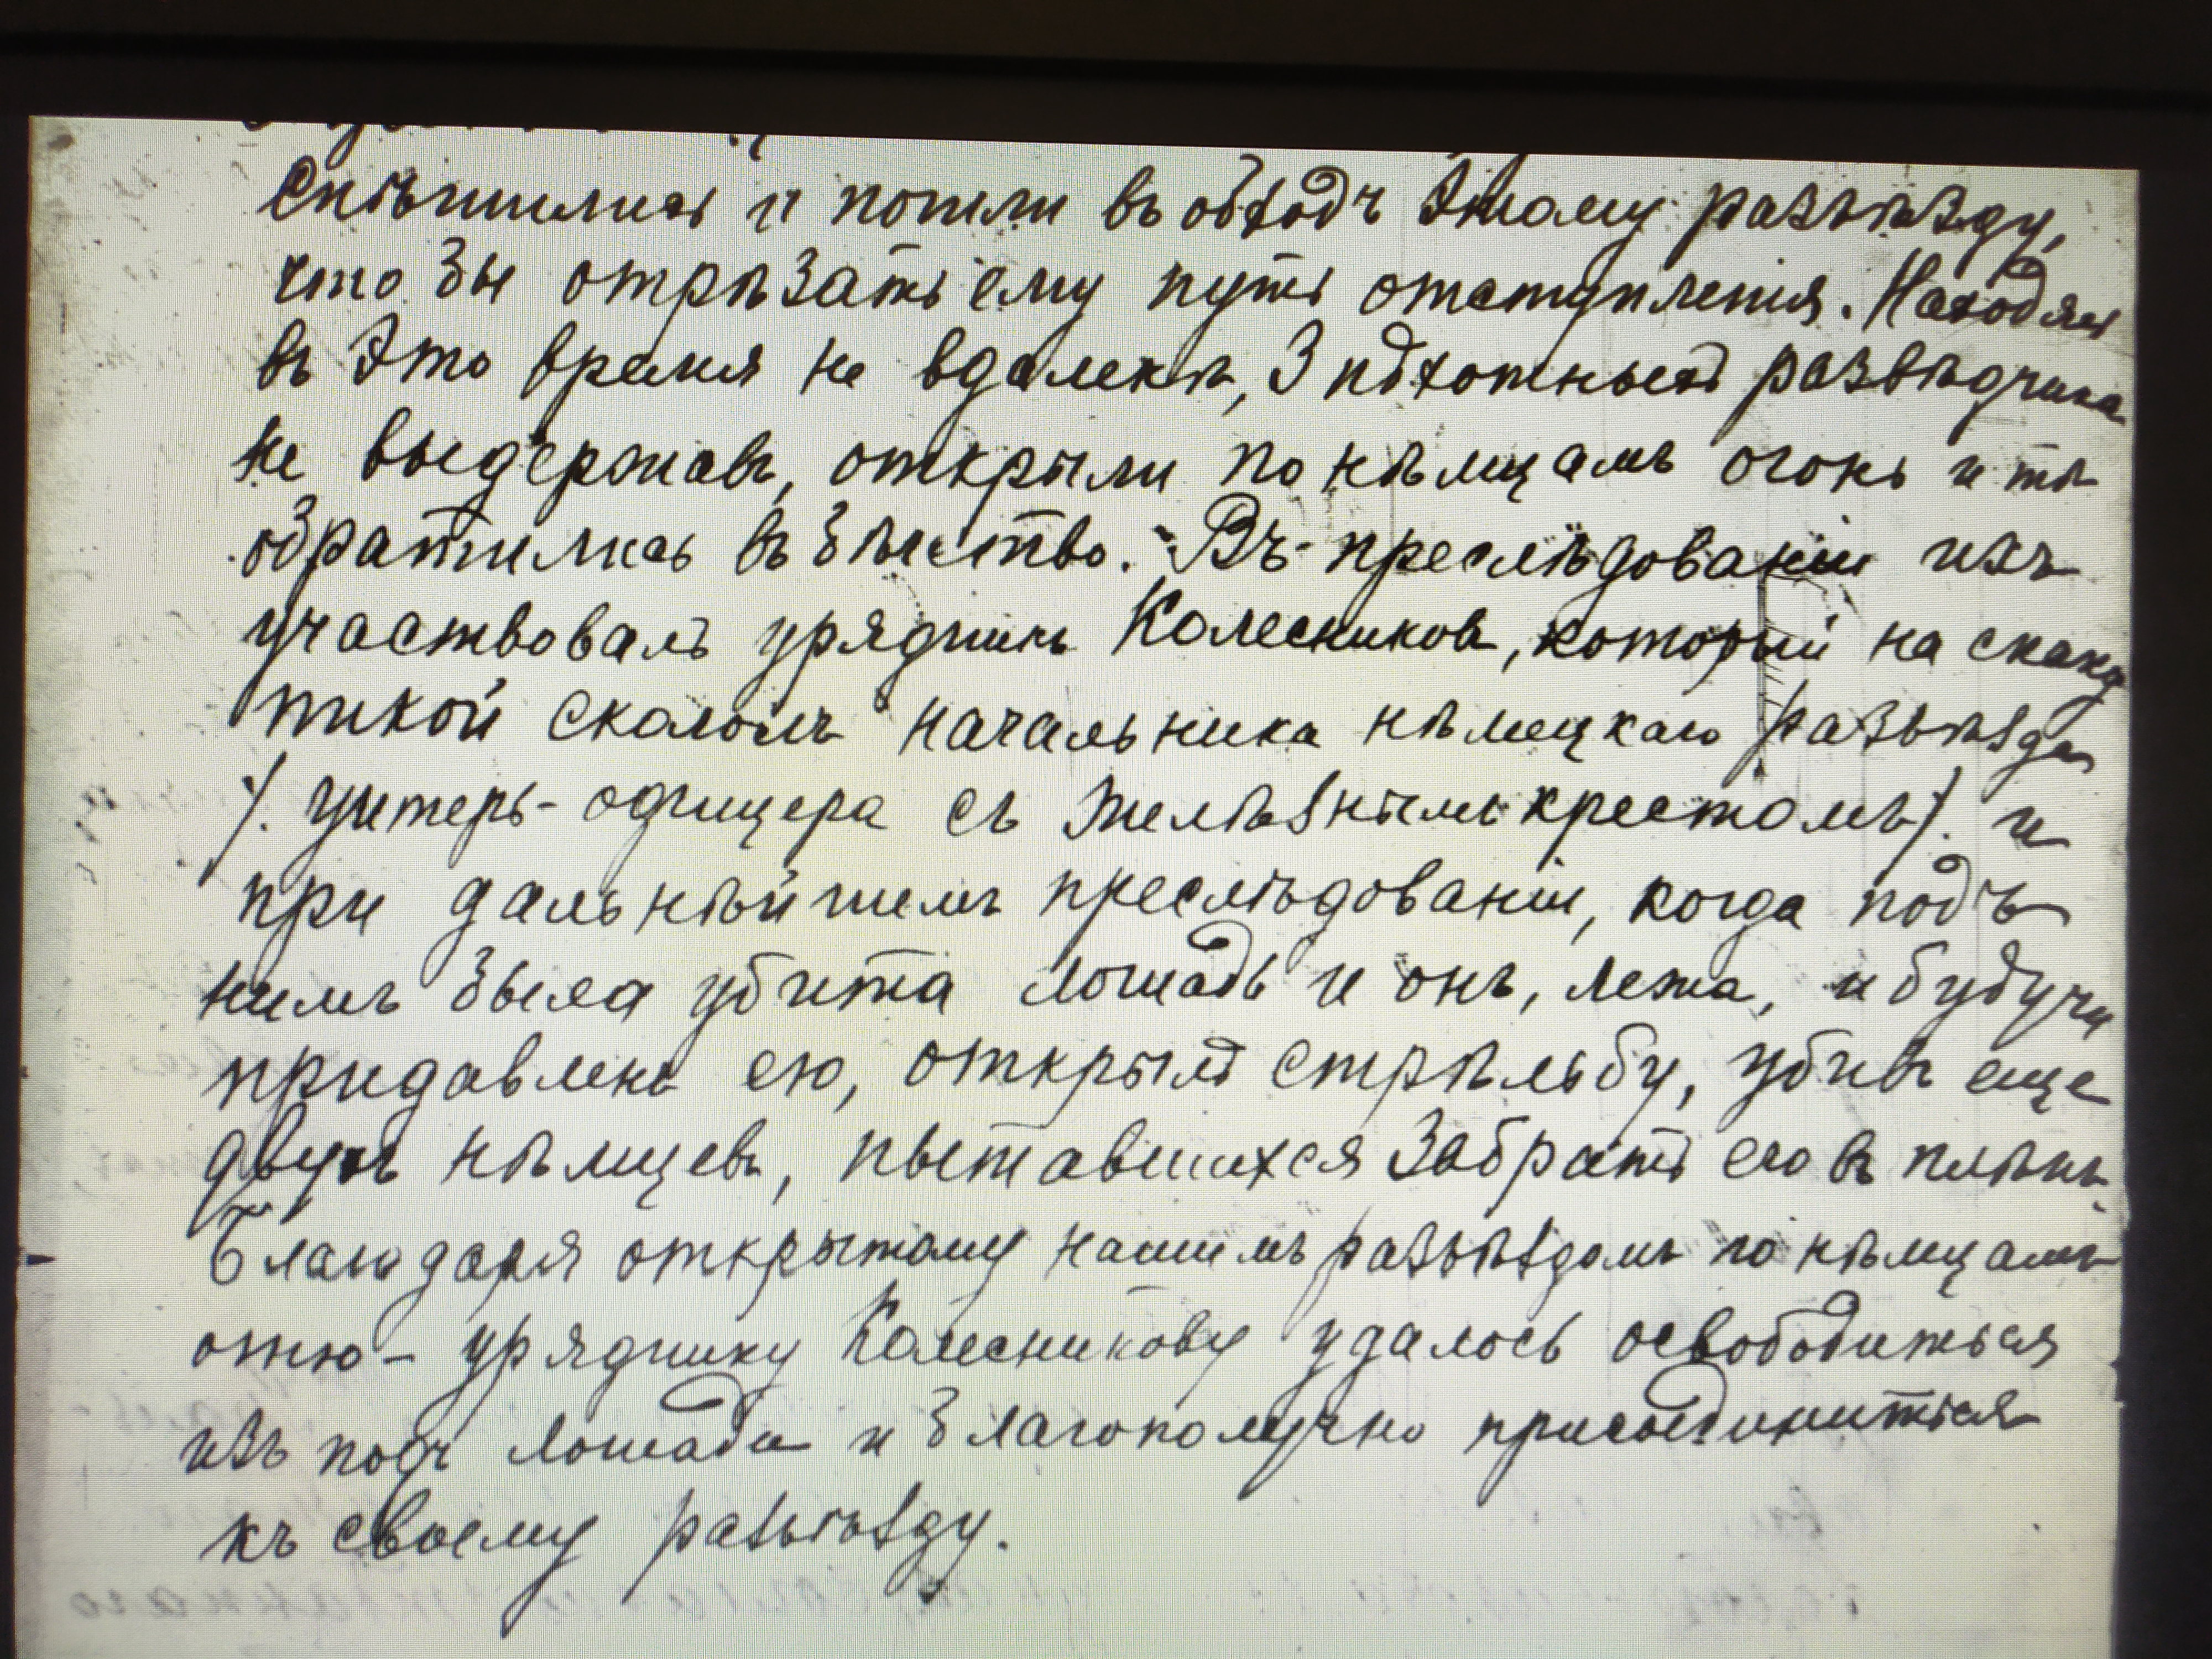 спѣшились и пошли въ обходъ этому разъѣзду,
что бы отрѣзать ему путь отступленія. Находясь
въ это время не вдалекѣ, 3 пѣхотныхъ развѣдчика
не выдержавъ, открыли по нѣмцамъ огонь и тѣ
обратились въ бѣгство. Въ преслѣдованіи ихъ
участвовалъ урядникъ Колесниковъ, который на скаку
пикой скололъ начальника нѣмецкаго разъѣзда
/. Унтеръ-офицера съ желѣзнымъ крестомъ/. и
при дальнѣйшемъ преслѣдованіи, когда подъ
нимъ была убита лошадь и онъ, лежа, и будучи
придавленъ ею, открылъ стрѣльбу, убивъ еще
двухъ нѣмцевъ, пытавшихся забрать его въ плѣнъ.
Благодаря открытому нашимъ разъѣздомъ по нѣмцамъ
огню - уряднику Колесникову удалось освободиться
изъ подъ лошади и благополучно присоединиться
къ своему разъѣзду.